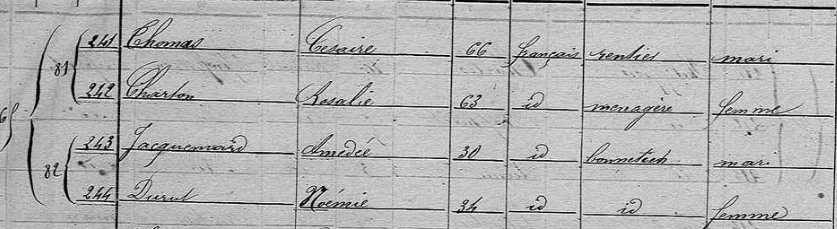 241 Thomas Cesaire 66 français rentier mari
81
242 Charton Rosalie 63 id menagère femme
243 Jacquemard Amedée 30 id bonnetier mari
82
244 Durut Noémie 34 id id femme